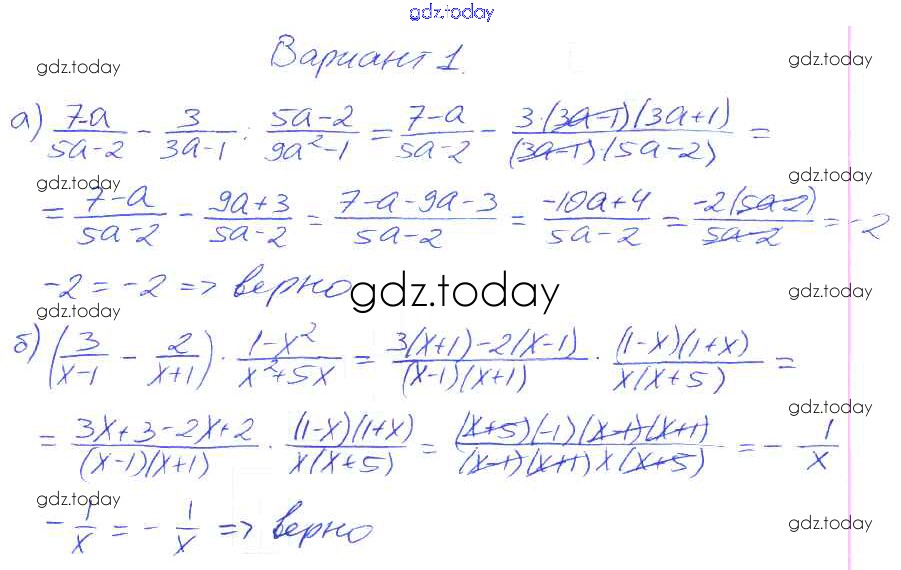 gdz.today
Вариант 1.
gdz.today gdz.today
а) (7-a)/(5a-2) - 3/(3a-1) : (5a-2)/(9a²-1) = (7-a)/(5a-2) - (3·(3a-1)(3a+1))/((3a-1)(5a-2)) =
gdz.today gdz.today
= (7-a)/(5a-2) - (9a+3)/(5a-2) = (7-a-9a-3)/(5a-2) = (-10a+4)/(5a-2) = (-2(5a-2))/(5a-2) = -2
-2 = -2 => верно
gdz.today gdz.today gdz.today
б) (3/(x-1) - 2/(x+1)) · (1-x²)/(x²+5x) = (3(x+1)-2(x-1))/((x-1)(x+1)) · ((1-x)(1+x))/(x(x+5)) =
gdz.today
= (3x+3-2x+2)/((x-1)(x+1)) · ((1-x)(1+x))/(x(x+5)) = ((x+5)(-1)(x-1)(x+1))/((x-1)(x+1)x(x+5)) = -1/x
gdz.today gdz.today
-1/x = -1/x => верно